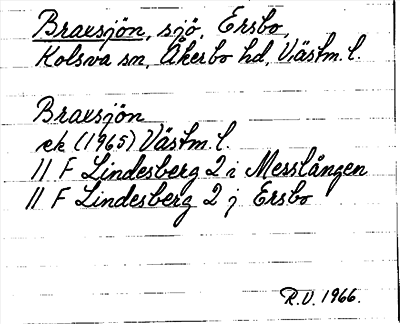 Braxsjön, sjö, Ersbo,
Kolsva sn, Åkerbo hd, Västm. l.
Braxsjön
ek (1965) Västm. l.
11 F Lindesberg 2 i Messlången
11 F Lindesberg 2 j Ersbo
R.V. 1966.